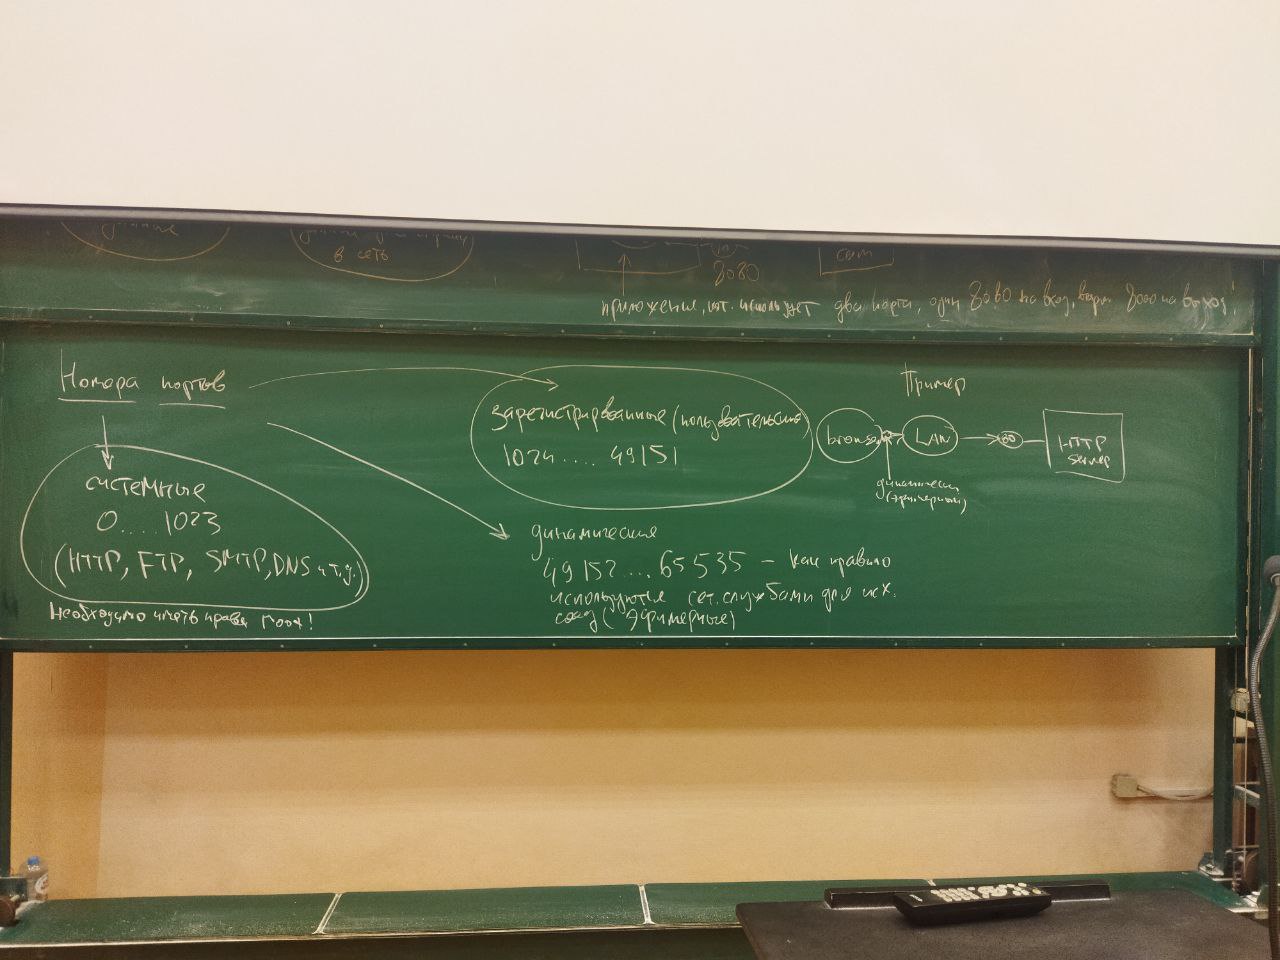 в сеть
8080
com
приложения, кот. использует два порта, один 8080 на вход, 8000 на выход!
Номера портов
системные
0....1023
(HTTP, FTP, SMTP, DNS и т.д.)
Необходимо иметь права root!
зарегистрированные (пользовательские)
1024.....49151
динамические
49152....65535 – как правило
используются сет. службами для исх.
соед (эфимерные)
Пример
browser
LAN
80
HTTP
server
динамический
(эфимерный)